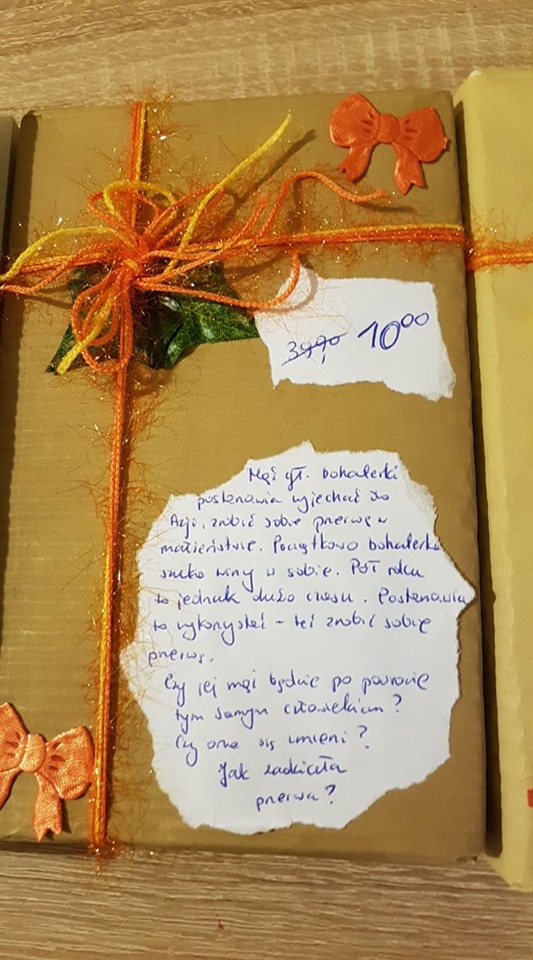 39,90 10⁰⁰
Mąż gł. bohaterki
postanawia wyjechać do
Azji, zrobić sobie przerwę w
małżeństwie. Początkowo bohaterka
szuka winy w sobie. Pół roku
to jednak dużo czasu. Postanawia
to wykorzystać – też zrobić sobie
przerwę.
Czy jej mąż będzie po powrocie
tym samym człowiekiem?
Czy ona się zmieni?
Jak zadziała
przerwa?